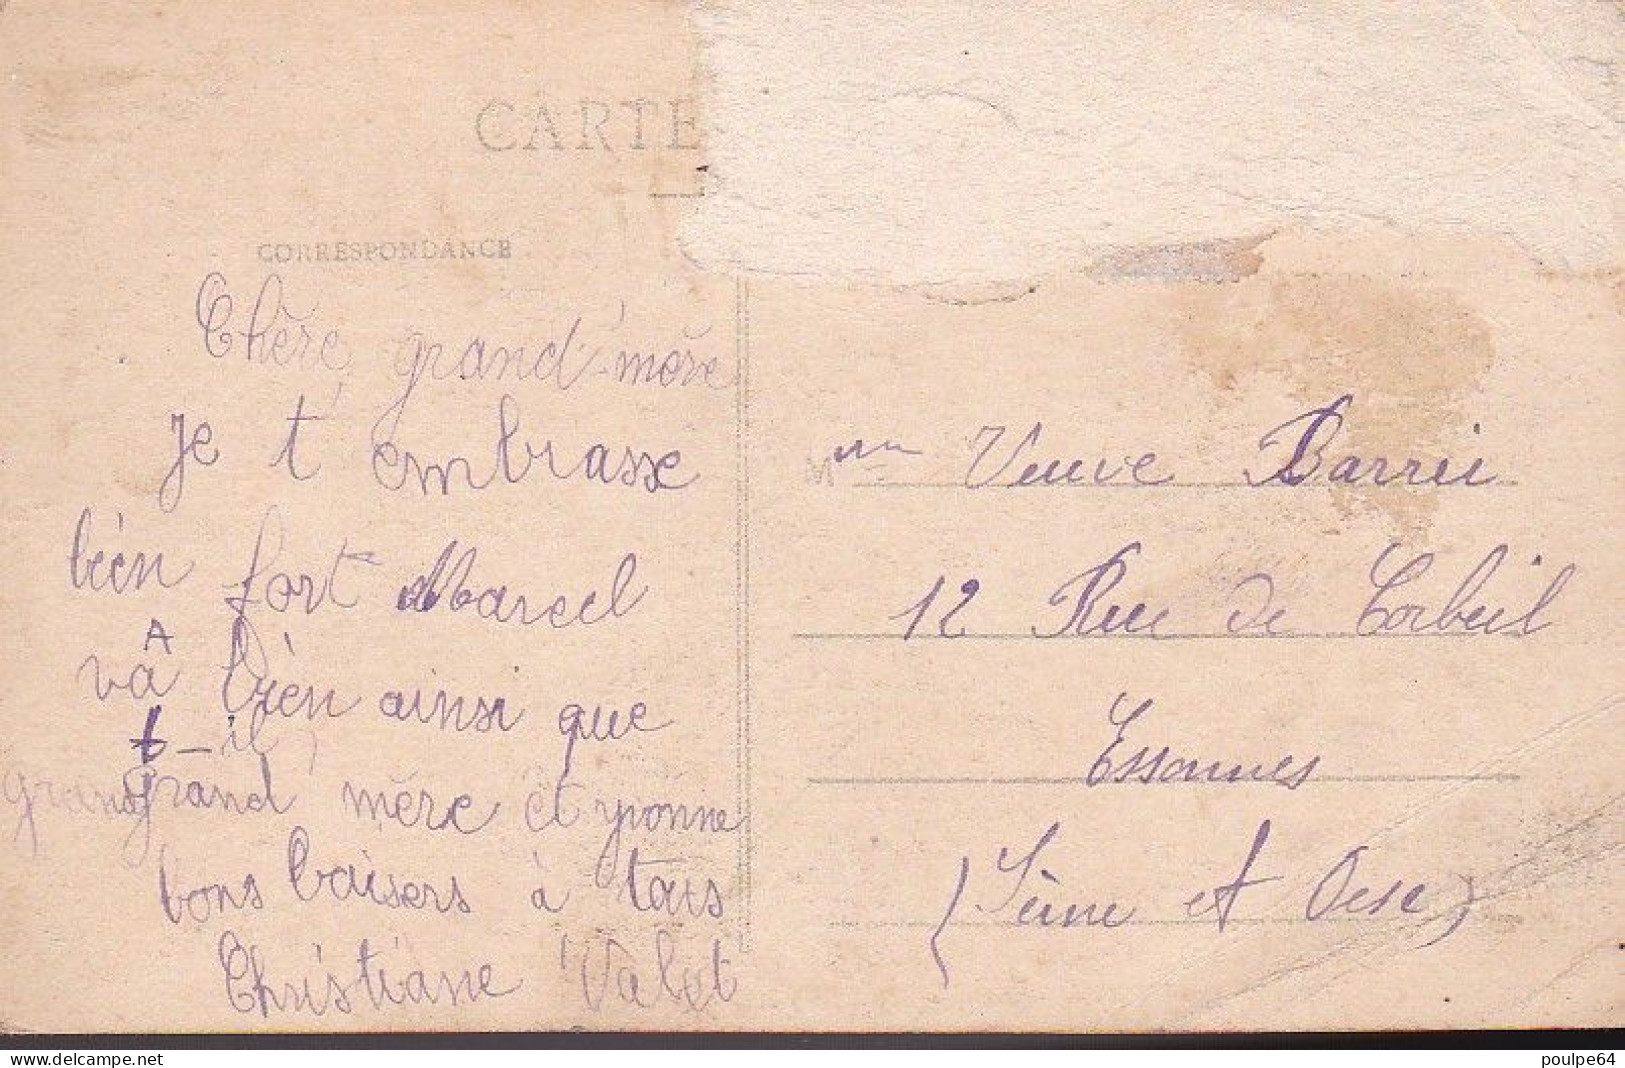 CARTE
CORRESPONDANCE
Chère grand'mère
Je t'embrasse
bien fort Marcel
va bien ainsi que
A
t-il
grand grand mère et yvonne
bons baisers à tous
Christiane Valet
Mme Veuve Barrei
12 Rue de Corbeil
Essonnes
(Seine et Oise)
delcampe.net
poulpe64